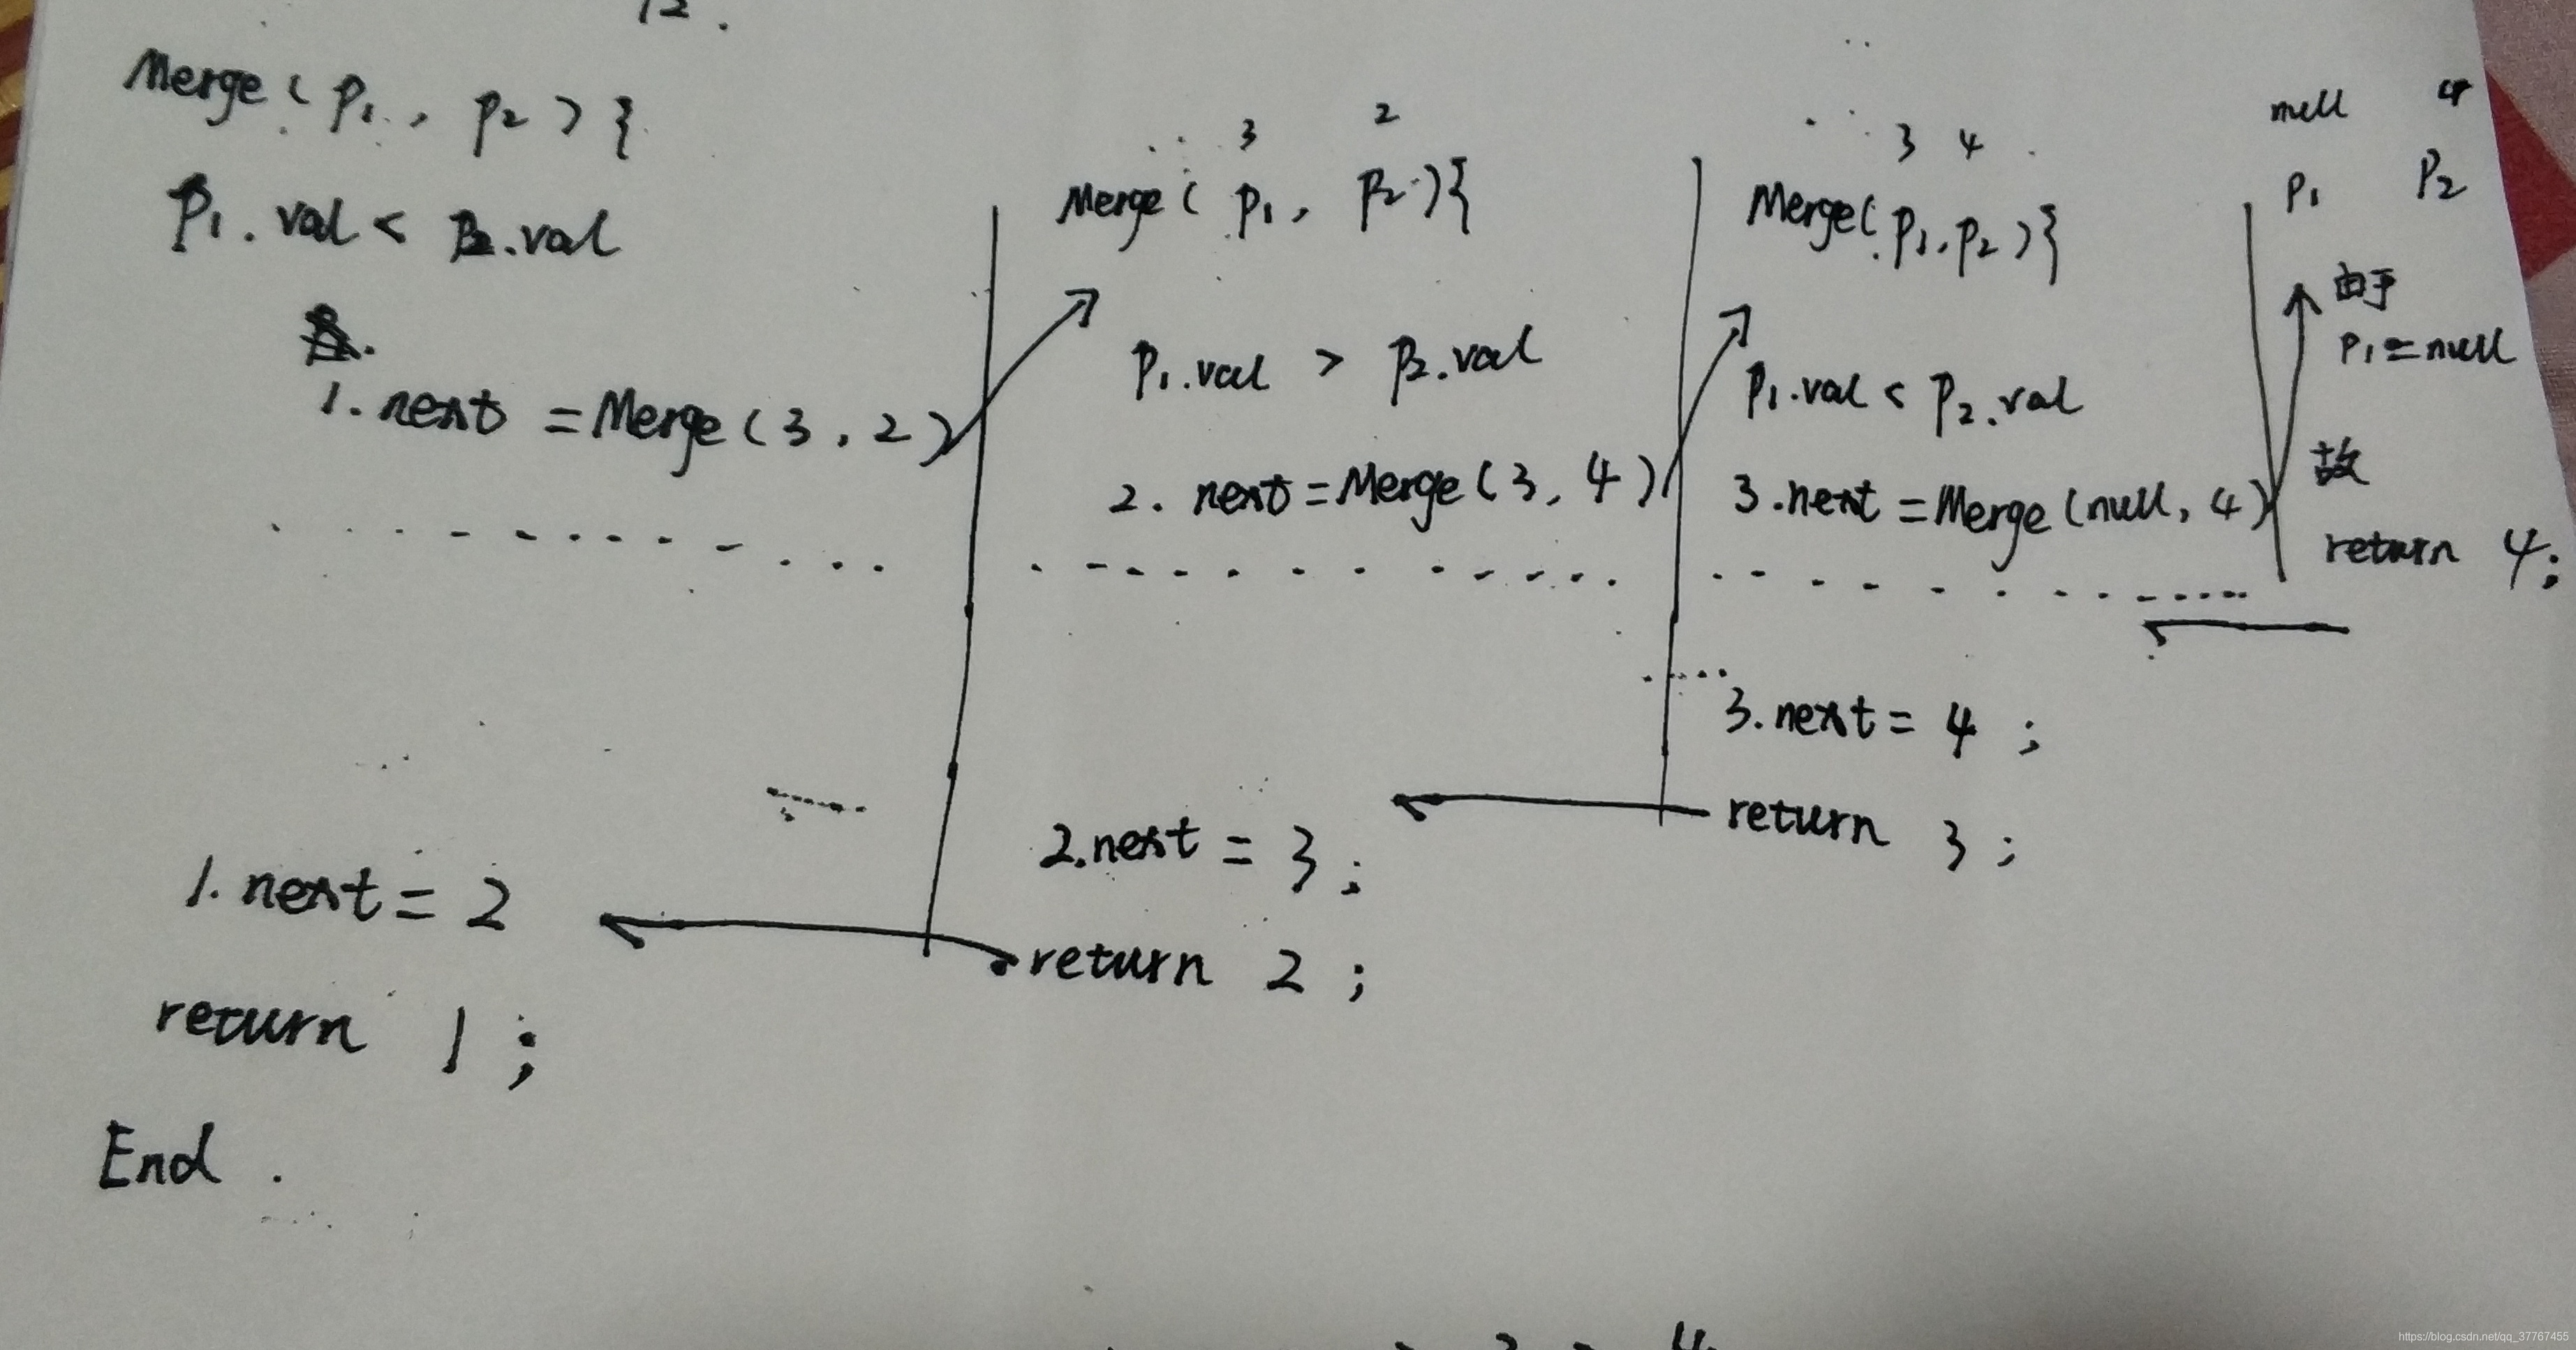 12.
Merge(p1, p2){
p1.val < p2.val
1.next = Merge(3, 2)
1.next = 2
return 1;
End.
3 2
Merge(p1, p2){
p1.val > p2.val
2.next = Merge(3, 4)
2.next = 3;
return 2;
3 4
Merge(p1, p2){
p1.val < p2.val
3.next = Merge(null, 4)
3.next = 4;
return 3;
null 4
p1 p2
由于
p1=null
故
return 4;
https://blog.csdn.net/qq_37767455